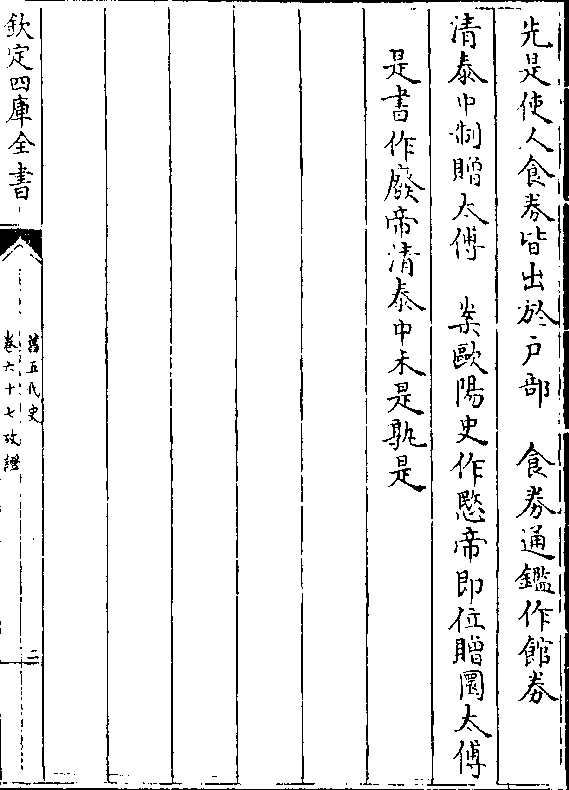 先是使人食券皆出於戶部　食券通鑑作館券
清泰中制贈太傅　案歐陽史作愍帝即位贈圜太傅
是書作廢帝清泰中未是孰是
欽定四庫全書
舊五代史
卷六十七攷證
二